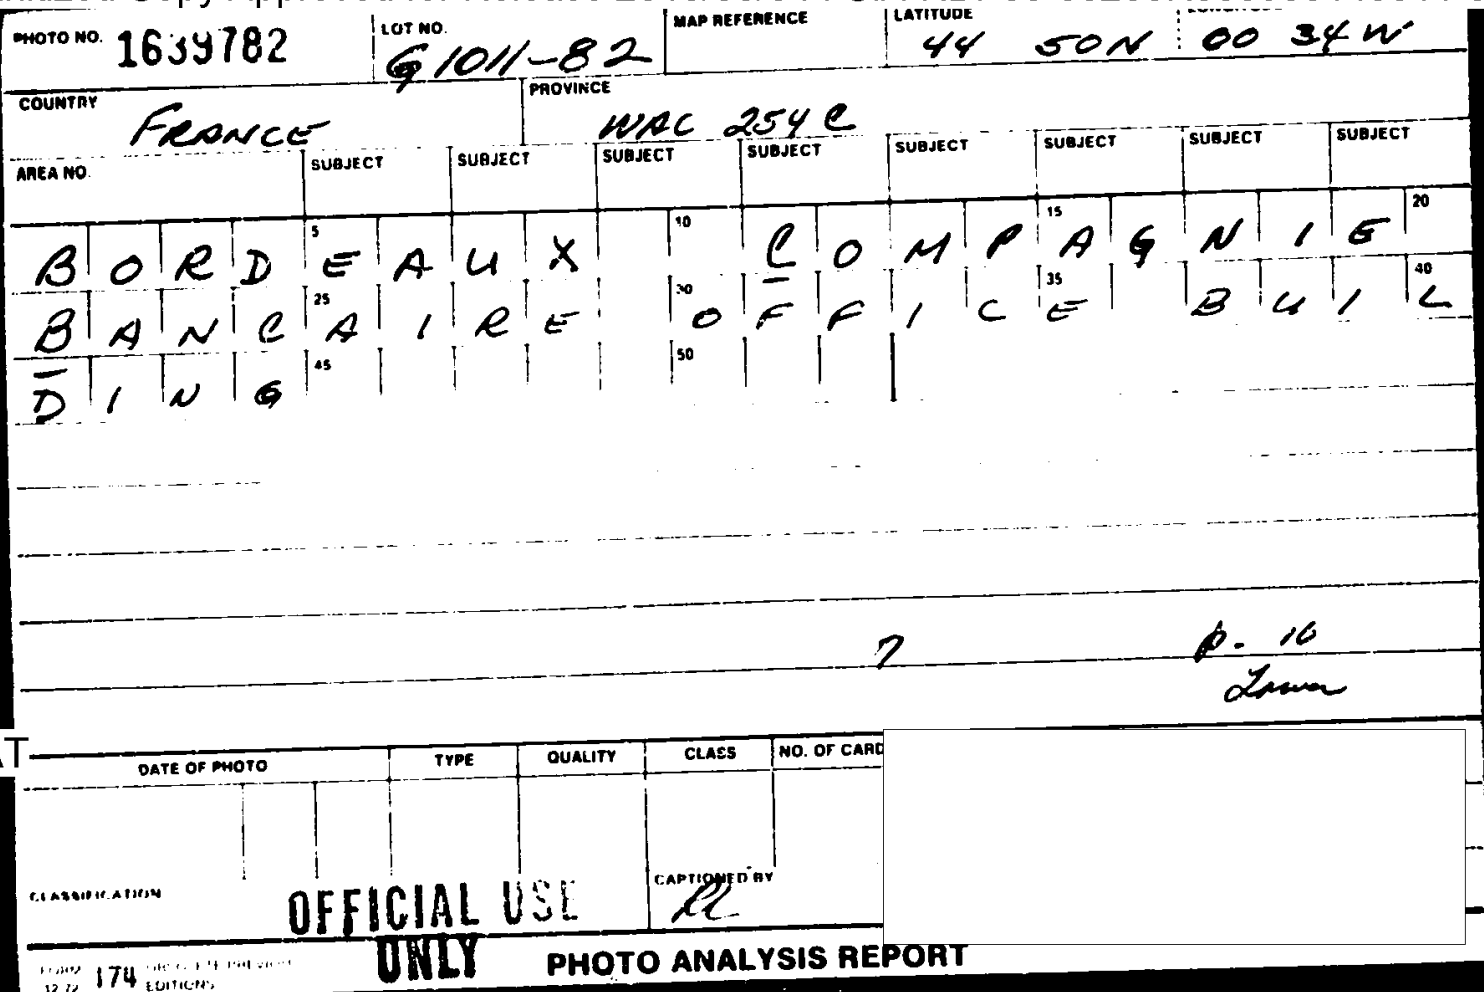 Copy Approved for Release
PHOTO NO. 1639782 LOT NO. G1011-82 MAP REFERENCE LATITUDE 44 50N 00 34W
COUNTRY FRANCE PROVINCE WAC 254C
AREA NO. SUBJECT SUBJECT SUBJECT SUBJECT SUBJECT SUBJECT SUBJECT SUBJECT
5 10 15 20
BORDEAUX COMPAGNIE
25 30 35 40
BANCAIRE OFFICE BUIL
45 50
DING
7 p. 16
AT
DATE OF PHOTO TYPE QUALITY CLASS NO. OF CARD
CLASSIFICATION OFFICIAL USE ONLY CAPTIONED BY
FORM 12-72 174 EDITIONS PHOTO ANALYSIS REPORT